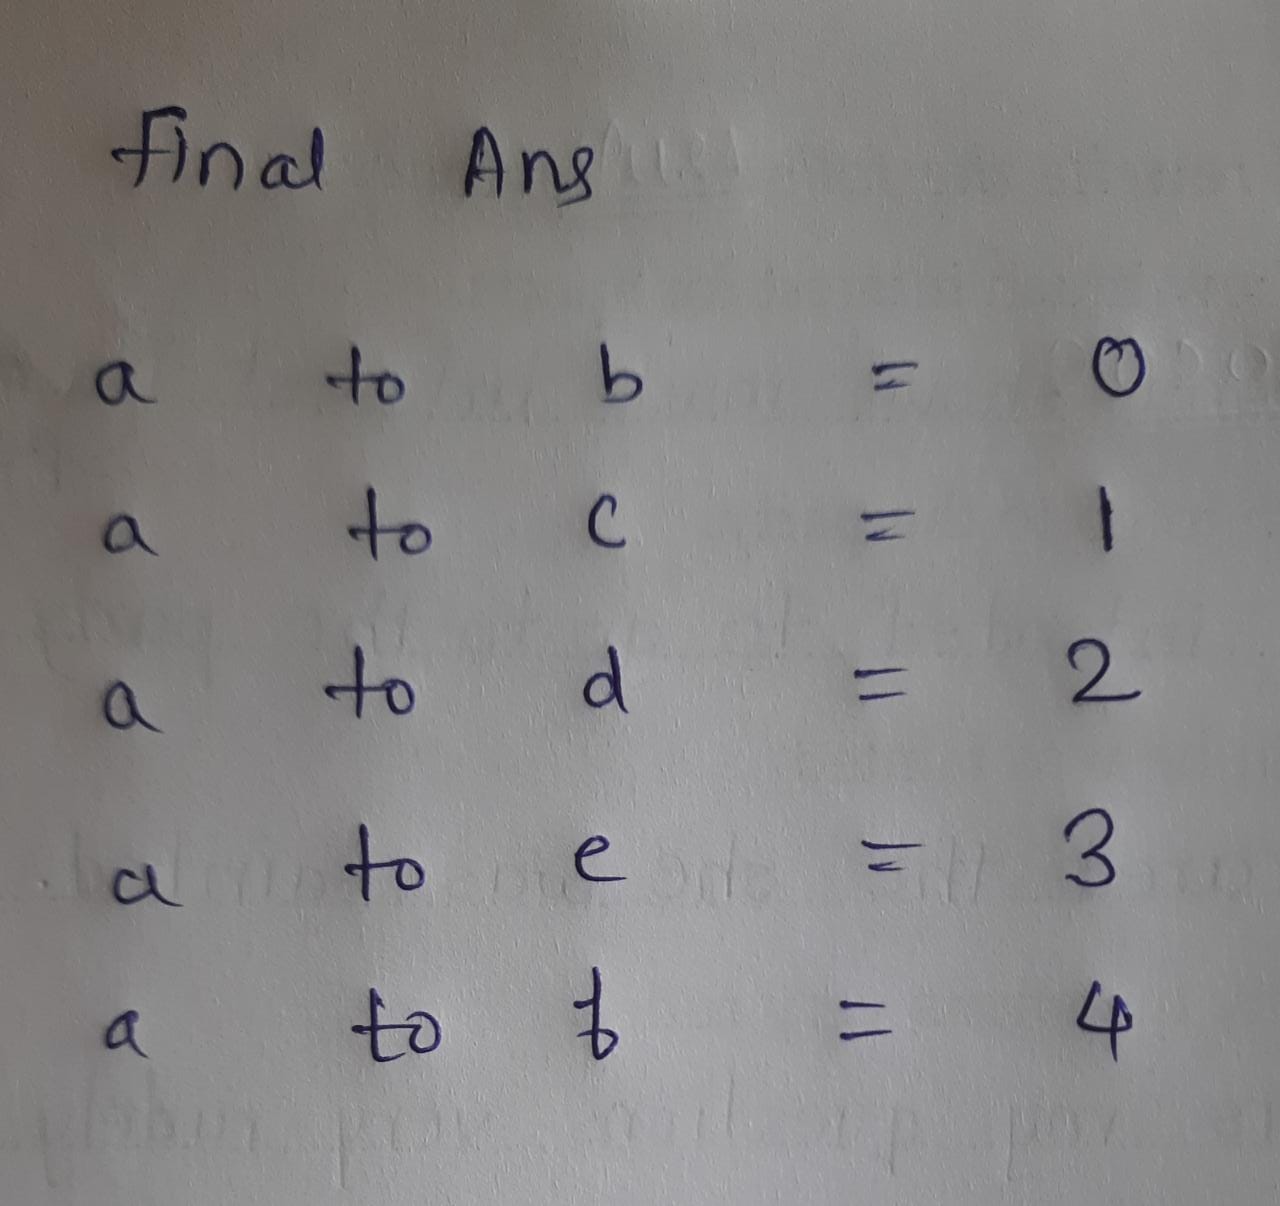 Final Ans
a to b = 0
a to c = 1
a to d = 2
a to e = 3
a to f = 4